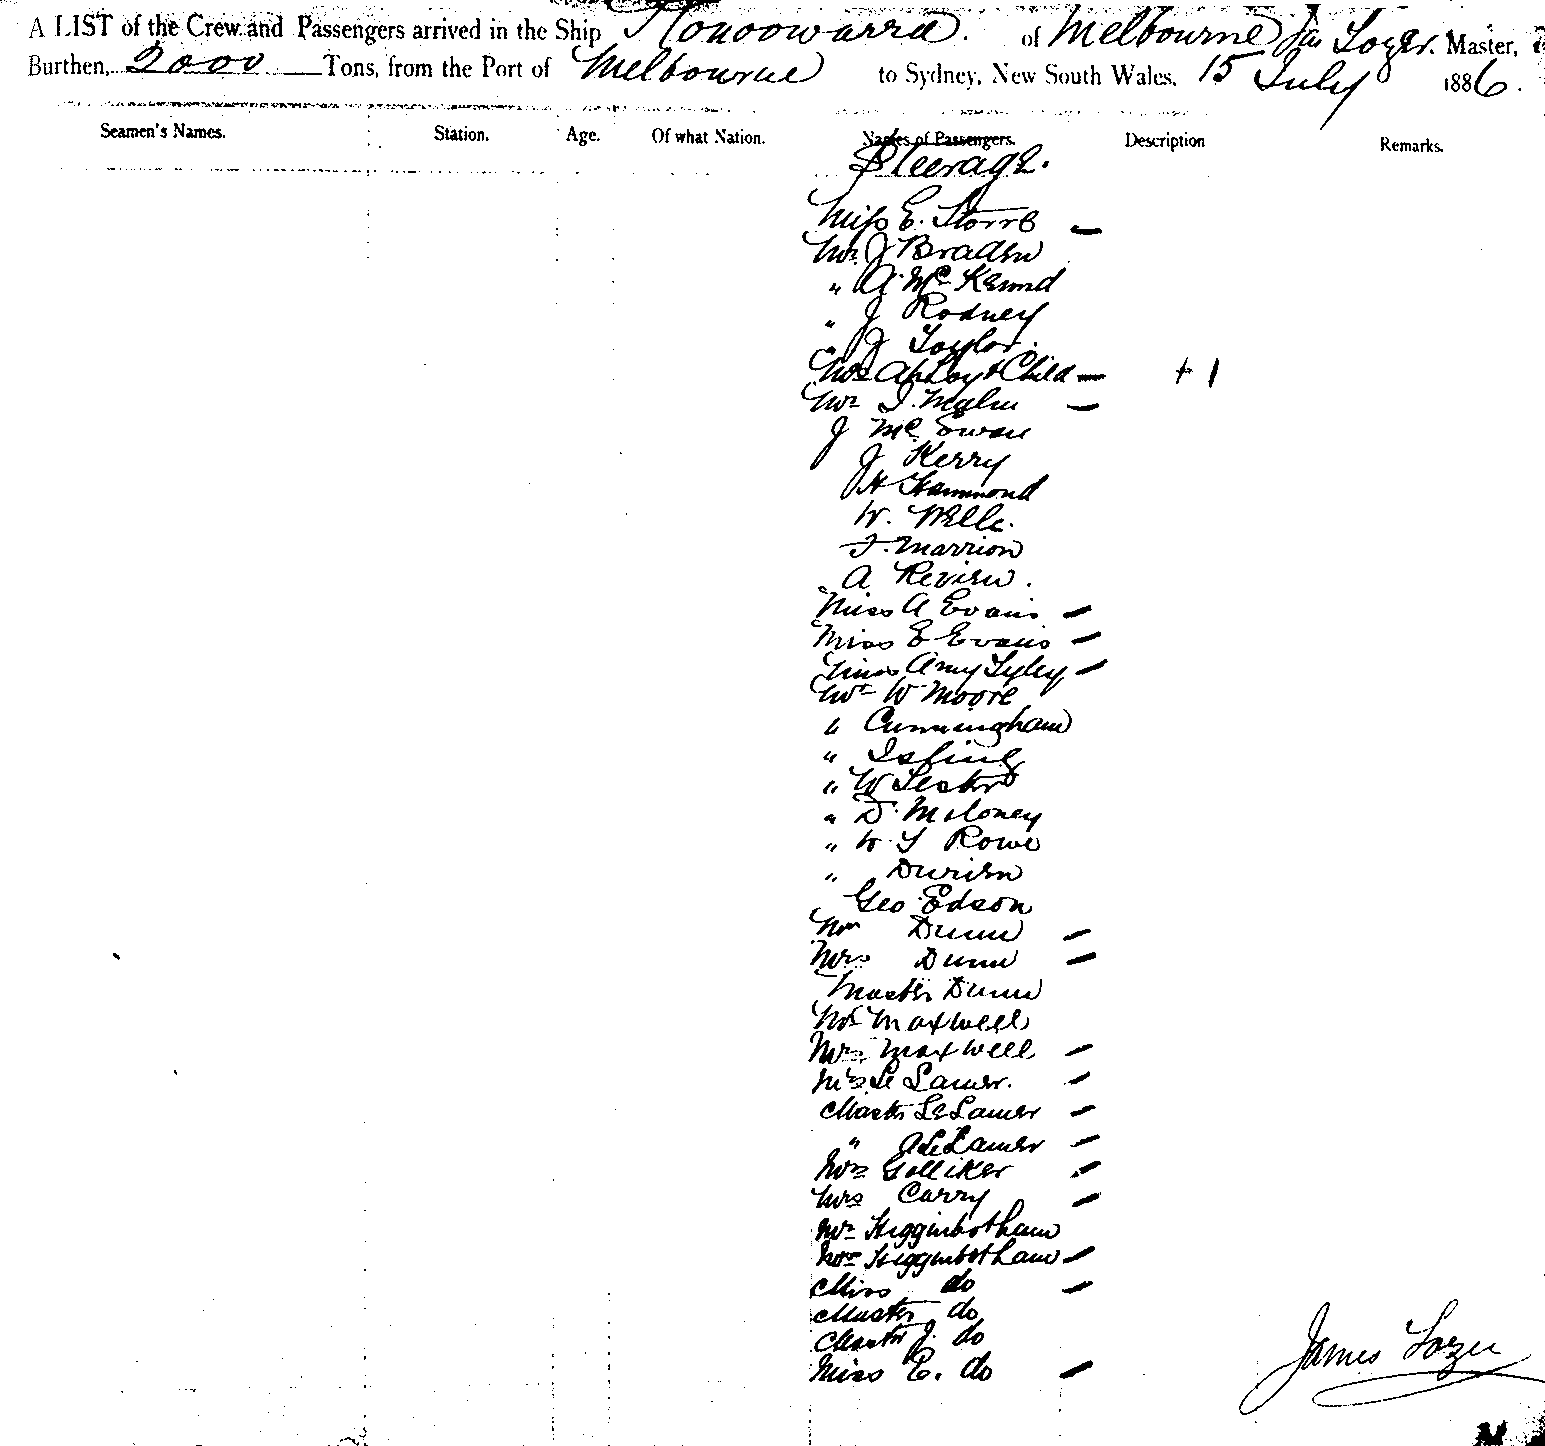 A LIST of the Crew and Passengers arrived in the Ship Konoowarra. of Melbourne Jas Lozer. Master,
Burthen, 2000 Tons, from the Port of Melbourne to Sydney, New South Wales. 15 July 1886.
Seamen's Names. Station. Age. Of what Nation. Names of Passengers. Description Remarks.
Steerage.
Miss E. Storre
Mr J Braden
" A. Mc
" J Rodney
" J Taylor.
Mrs & Child + 1
Mr
J McEwan
J Kerry
H Hammond
W. Wells.
T. Marrion
A
Miss A Evans
Miss E Evans
Miss Amy
Mr W Moore
" Cunningham
"
" W Lester
" D. Moloney
" W Rowe
"
Geo Edson
Dunn
Mrs Dunn
Master Dunn
Mr Maxwell
Mrs Maxwell
Mrs Le Lamer.
Master Le Lamer
" A Le Lamer
Mrs Golliker
Mrs Carry
Mr Higginbotham
Mrs Higginbotham
Miss do
Master do
Master J. do
Miss E. do
James Lozer